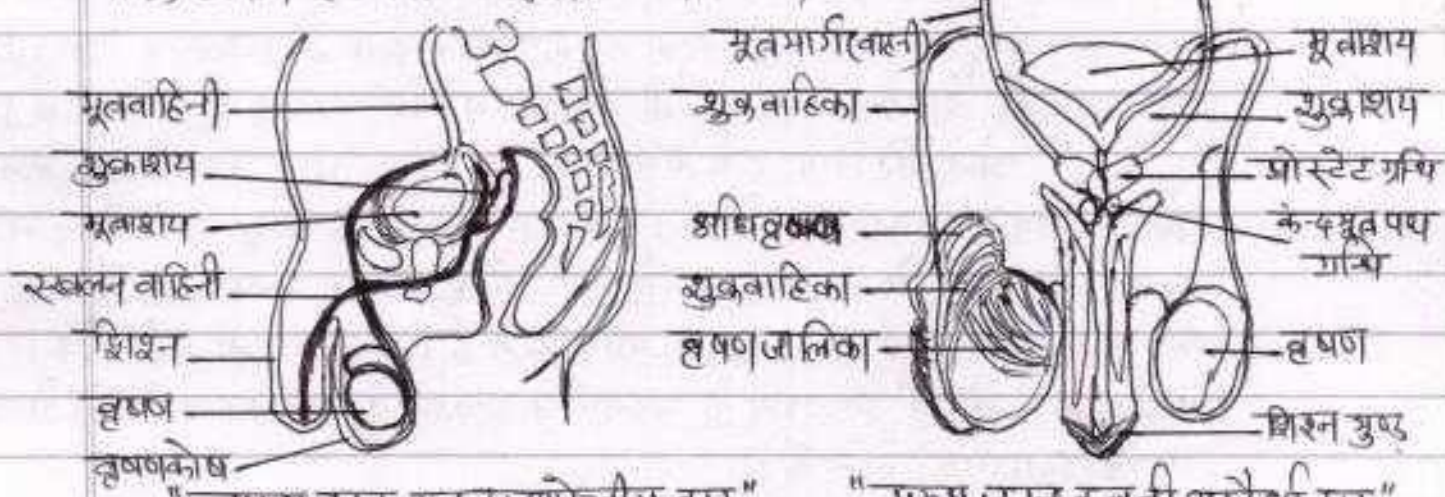 मूत्रवाहिनी
शुक्राशय
मूत्राशय
स्खलन वाहिनी
शिश्न
वृषण
वृषणकोष
मूत्रमार्ग(वाहिनी)
शुक्रवाहिका
अधिवृषण
शुक्रवाहिका
वृषण जालिका
मूत्राशय
शुक्राशय
प्रोस्टेट ग्रन्थि
कन्दमूत्र पथ
ग्रन्थि
वृषण
शिश्न मुण्ड